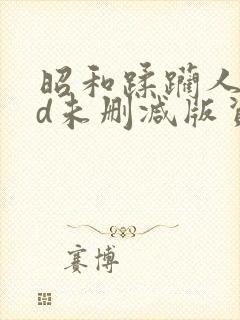 昭和蹂躏人
d未删减版
赛博